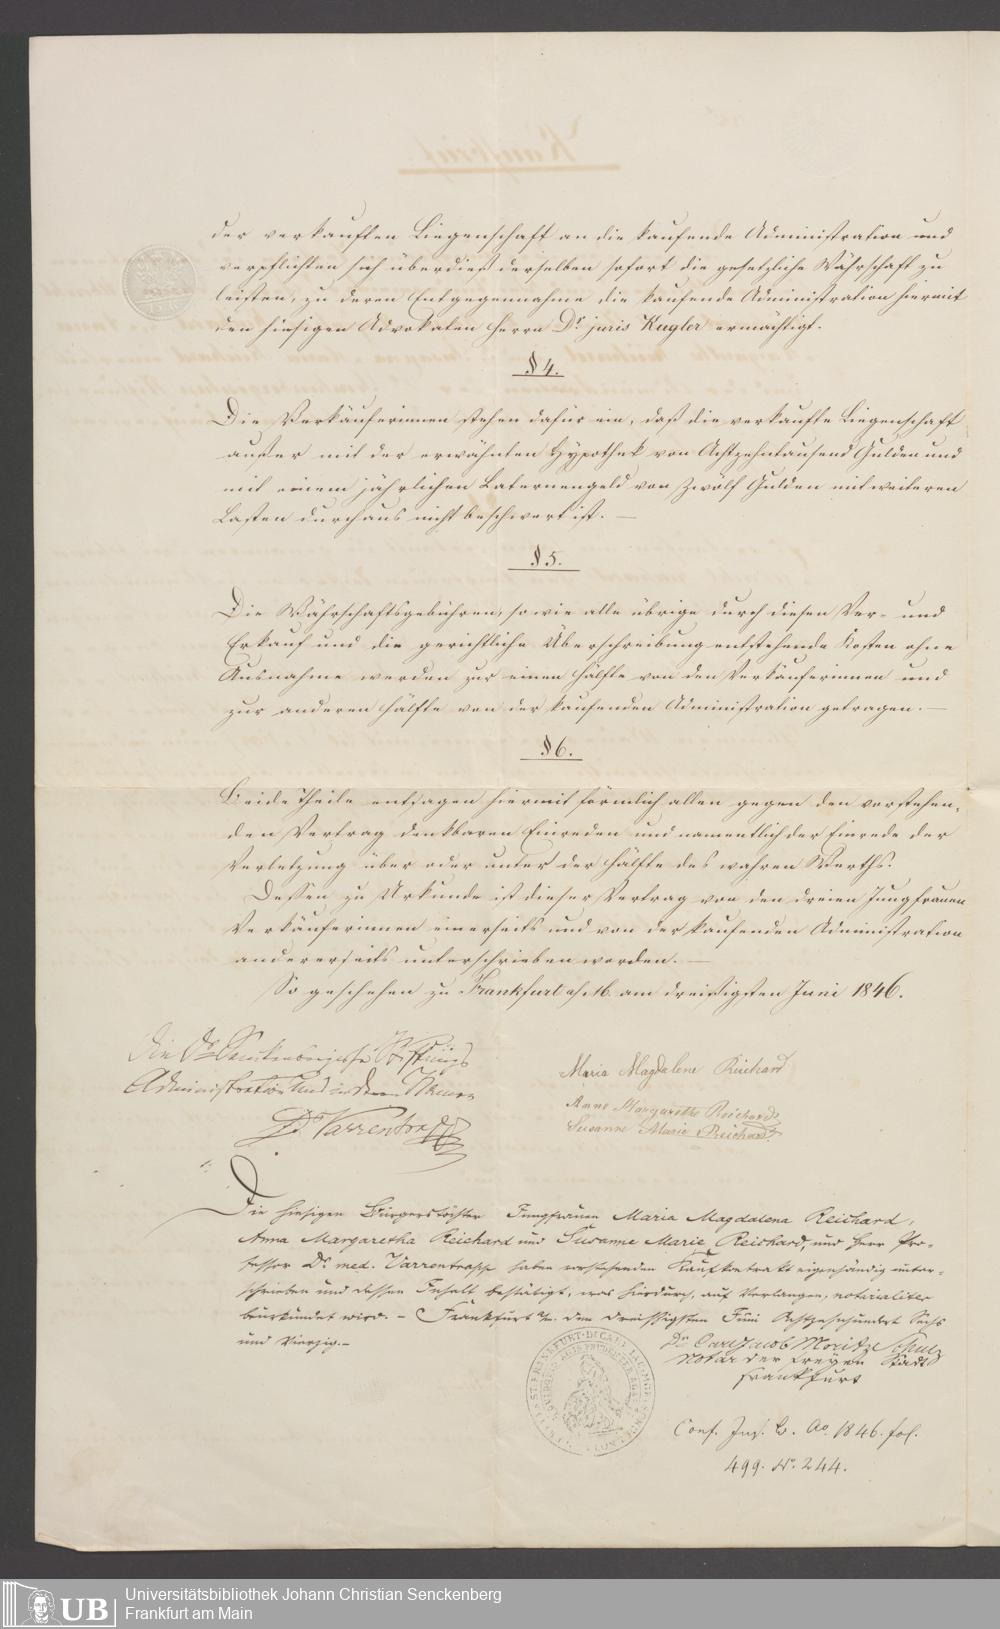 der verkauften Liegenschaft an die kaufende Administration und
verpflichten sich überdieß derselben sofort die gesetzliche Währschaft zu
leisten, zu deren Entgegennahme die kaufende Administration hiermit
den hiesigen Advokaten Herrn Dr. juris Kugler ermächtigt.
§ 4.
Die Verkäuferinnen stehen dafür ein, daß die verkaufte Liegenschaft
außer mit der erwähnten Hypothek von Achtzehntausend Gulden und
mit einem jährlichen Laternengeld von Zwölf Gulden mit weiteren
Lasten durchaus nicht beschwert ist. —
§ 5.
Die Währschaftsgebühren, so wie alle übrige durch diesen Ver- und
Erkauf und die gerichtliche Überschreibung entstehende Kosten ohne
Ausnahme werden zur einen Hälfte von den Verkäuferinnen und
zur anderen Hälfte von der kaufenden Administration getragen. —
§ 6.
Beide Theile entsagen hiermit förmlich allen gegen den vorstehen-
den Vertrag denkbaren Einreden und namentlich der Einrede der
Verletzung über oder unter der Hälfte des wahren Werths.
Dessen zu Urkunde ist dieser Vertrag von den dreien Jungfrauen
Verkäuferinnen einerseits und von der kaufenden Administration
andererseits unterschrieben worden. —
So geschehen zu Frankfurt a/M. am dreißigsten Juni 1846.
Die Dr. Senckenbergische Stiftungs
Administration und in deren Namen
Dr. Varrentrapp
Maria Magdalene Reichard
Anna Margaretha Reichard
Susanne Marie Reichard
Die hiesigen Bürgerstöchter Jungfrauen Maria Magdalena Reichard,
Anna Margaretha Reichard und Susanne Marie Reichard, und Herr Pro-
fessor Dr. med. Varrentrapp haben vorstehenden Kaufkontrakt eigenhändig unter-
schrieben und dessen Inhalt bestätigt, was hierdurch, auf Verlangen, notarialiter
beurkundet wird. – Frankfurt a/m. den dreissigsten Juni Achtzehnhundert Sechs
und Vierzig. –
Dr. Carl Jacob Moritz Schulz
Notar der freyen Stadt
Frankfurt
Conf. Ins. B. Ao. 1846. fol.
499. No. 244.
Universitätsbibliothek Johann Christian Senckenberg
Frankfurt am Main
UB